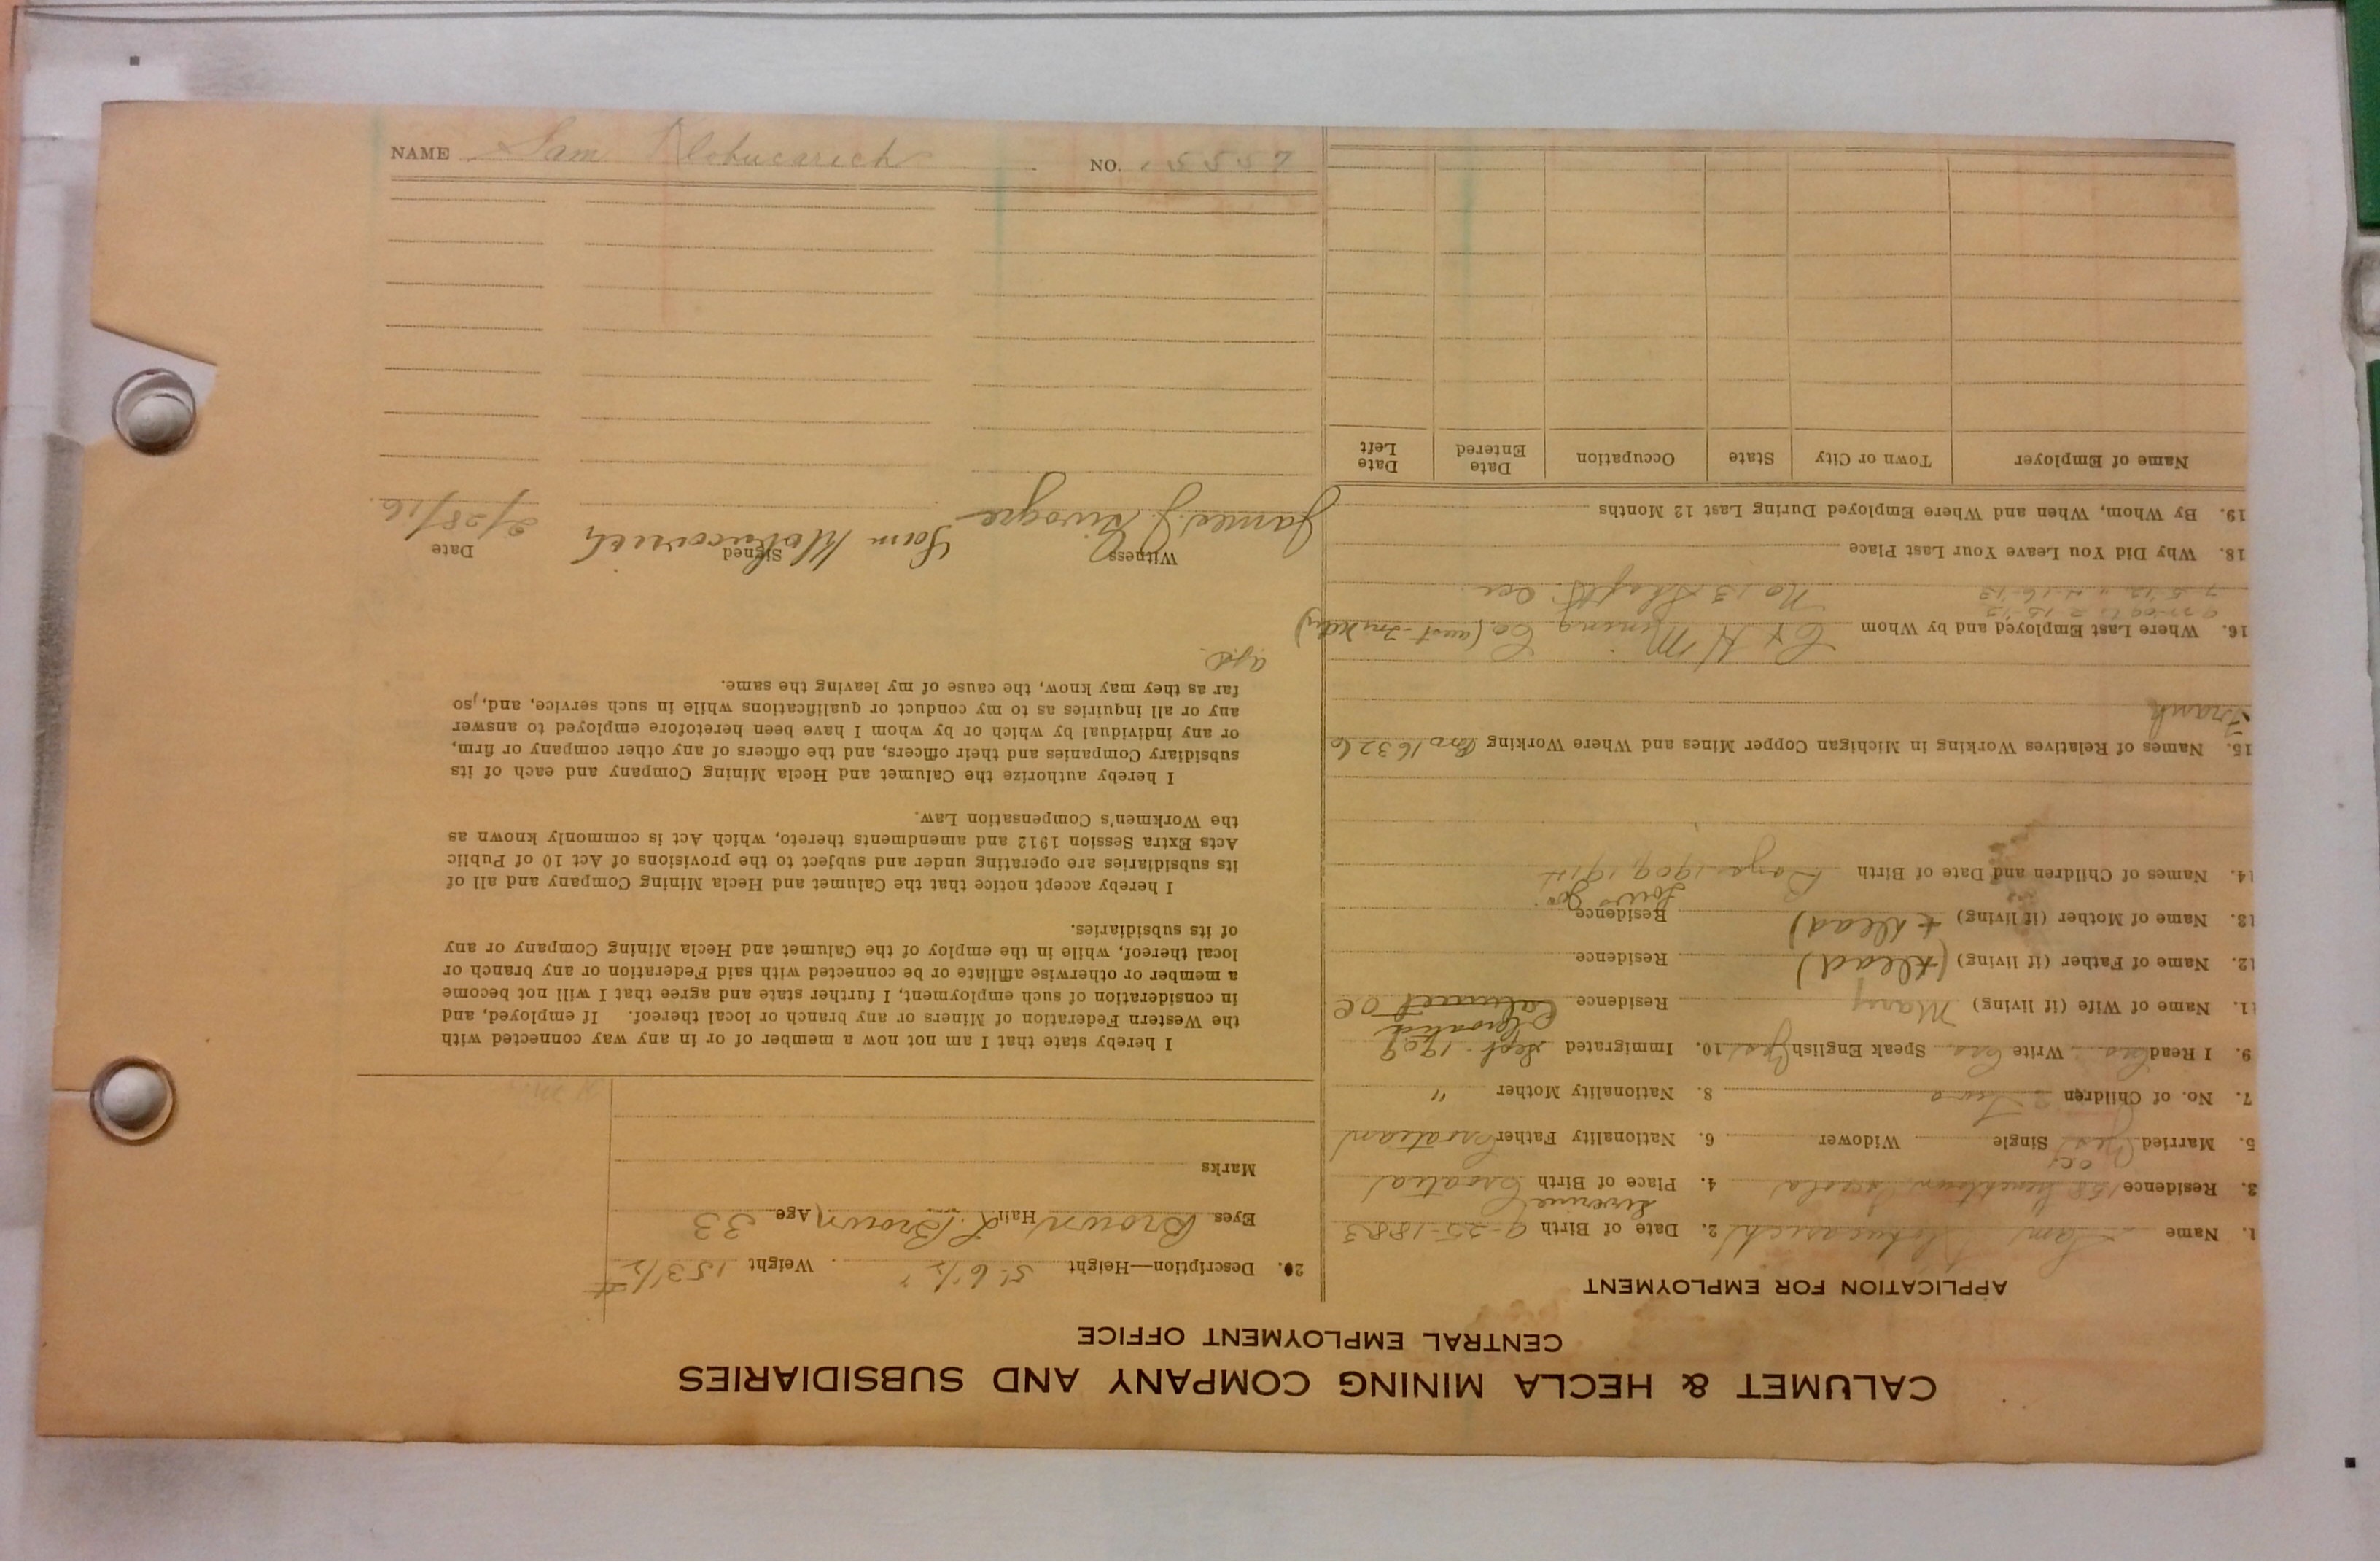 CALUMET & HECLA MINING COMPANY AND SUBSIDIARIES
CENTRAL EMPLOYMENT OFFICE
APPLICATION FOR EMPLOYMENT
1. Name Sam Klobucarich 2. Date of Birth 9-25-1883
3. Residence 158 Osceola 4. Place of Birth Croatia
Severine
5. Married Yes Single Widower 6. Nationality Father Croatian
7. No. of Children Two 8. Nationality Mother "
9. I Read Cro Write Cro Speak English Yes 10. Immigrated Sept. 1909
Croatia
11. Name of Wife (if living) Mary Residence Calumet
12. Name of Father (if living) (dead) Residence
13. Name of Mother (if living) (dead) Residence
14. Names of Children and Date of Birth Boys 1909, 1914
15. Names of Relatives Working in Michigan Copper Mines and Where Working Bro 16326
Frank
16. Where Last Employed and by Whom C & H Mining Co.
No 13 Shaft Oce
18. Why Did You Leave Your Last Place
19. By Whom, When and Where Employed During Last 12 Months
Name of Employer Town or City State Occupation Date Entered Date Left
20. Description—Height 5' 6 1/2" Weight 153 1/2 #
Eyes Brown Hair L. Brown Age 33
Marks
I hereby state that I am not now a member of or in any way connected with
the Western Federation of Miners or any branch or local thereof. If employed, and
in consideration of such employment, I further state and agree that I will not become
a member or otherwise affiliate or be connected with said Federation or any branch or
local thereof, while in the employ of the Calumet and Hecla Mining Company or any
of its subsidiaries.
I hereby accept notice that the Calumet and Hecla Mining Company and all of
its subsidiaries are operating under and subject to the provisions of Act 10 of Public
Acts Extra Session 1912 and amendments thereto, which Act is commonly known as
the Workmen's Compensation Law.
I hereby authorize the Calumet and Hecla Mining Company and each of its
subsidiary Companies and their officers, and the officers of any other company or firm,
or any individual by which or by whom I have been heretofore employed to answer
any or all inquiries as to my conduct or qualifications while in such service, and, so
far as they may know, the cause of my leaving the same.
Witness Signed Date
James J. Sam Klobucarich 2/28/16
NAME Sam Klobucarich NO. 15557